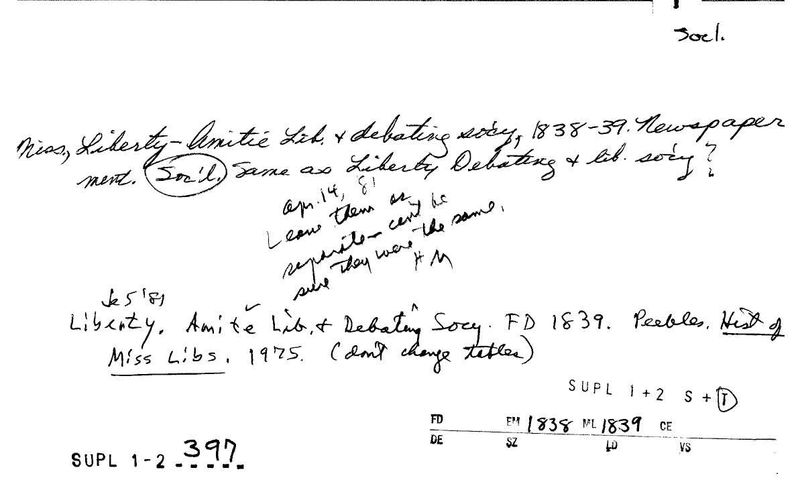 Socl.
Miss, Liberty-Amitié Lib. & debating so'cy, 1838-39. Newspaper
ment. Soc'l. Same as Liberty Debating & lib. so'cy?
apr. 14, '81
Leave them as
separate - can't be
sure they were the same.
HM
Je 5 '81
Liberty. Amité Lib. & Debating Socy. FD 1839. Peebles. Hist of
Miss Libs. 1975. (don't change tables)
SUPL 1+2 S+T
FD EM 1838 ML 1839 CE
DE SZ LD VS
SUPL 1-2 397